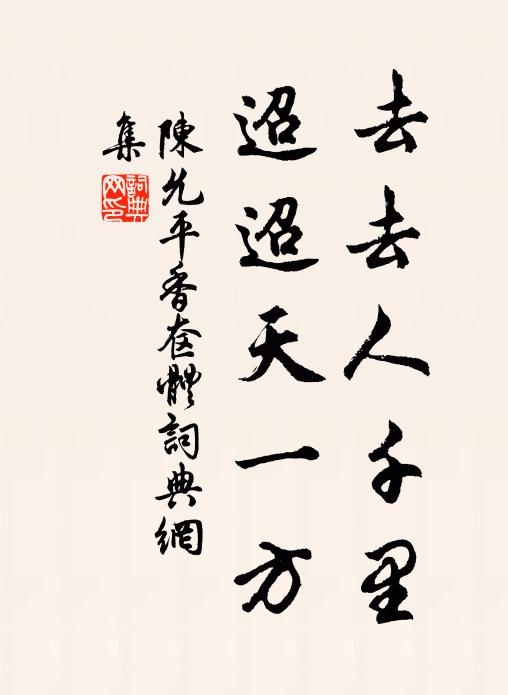 去去人千里
迢迢天一方
陳允平香奩體詞典網
集
詞典網印